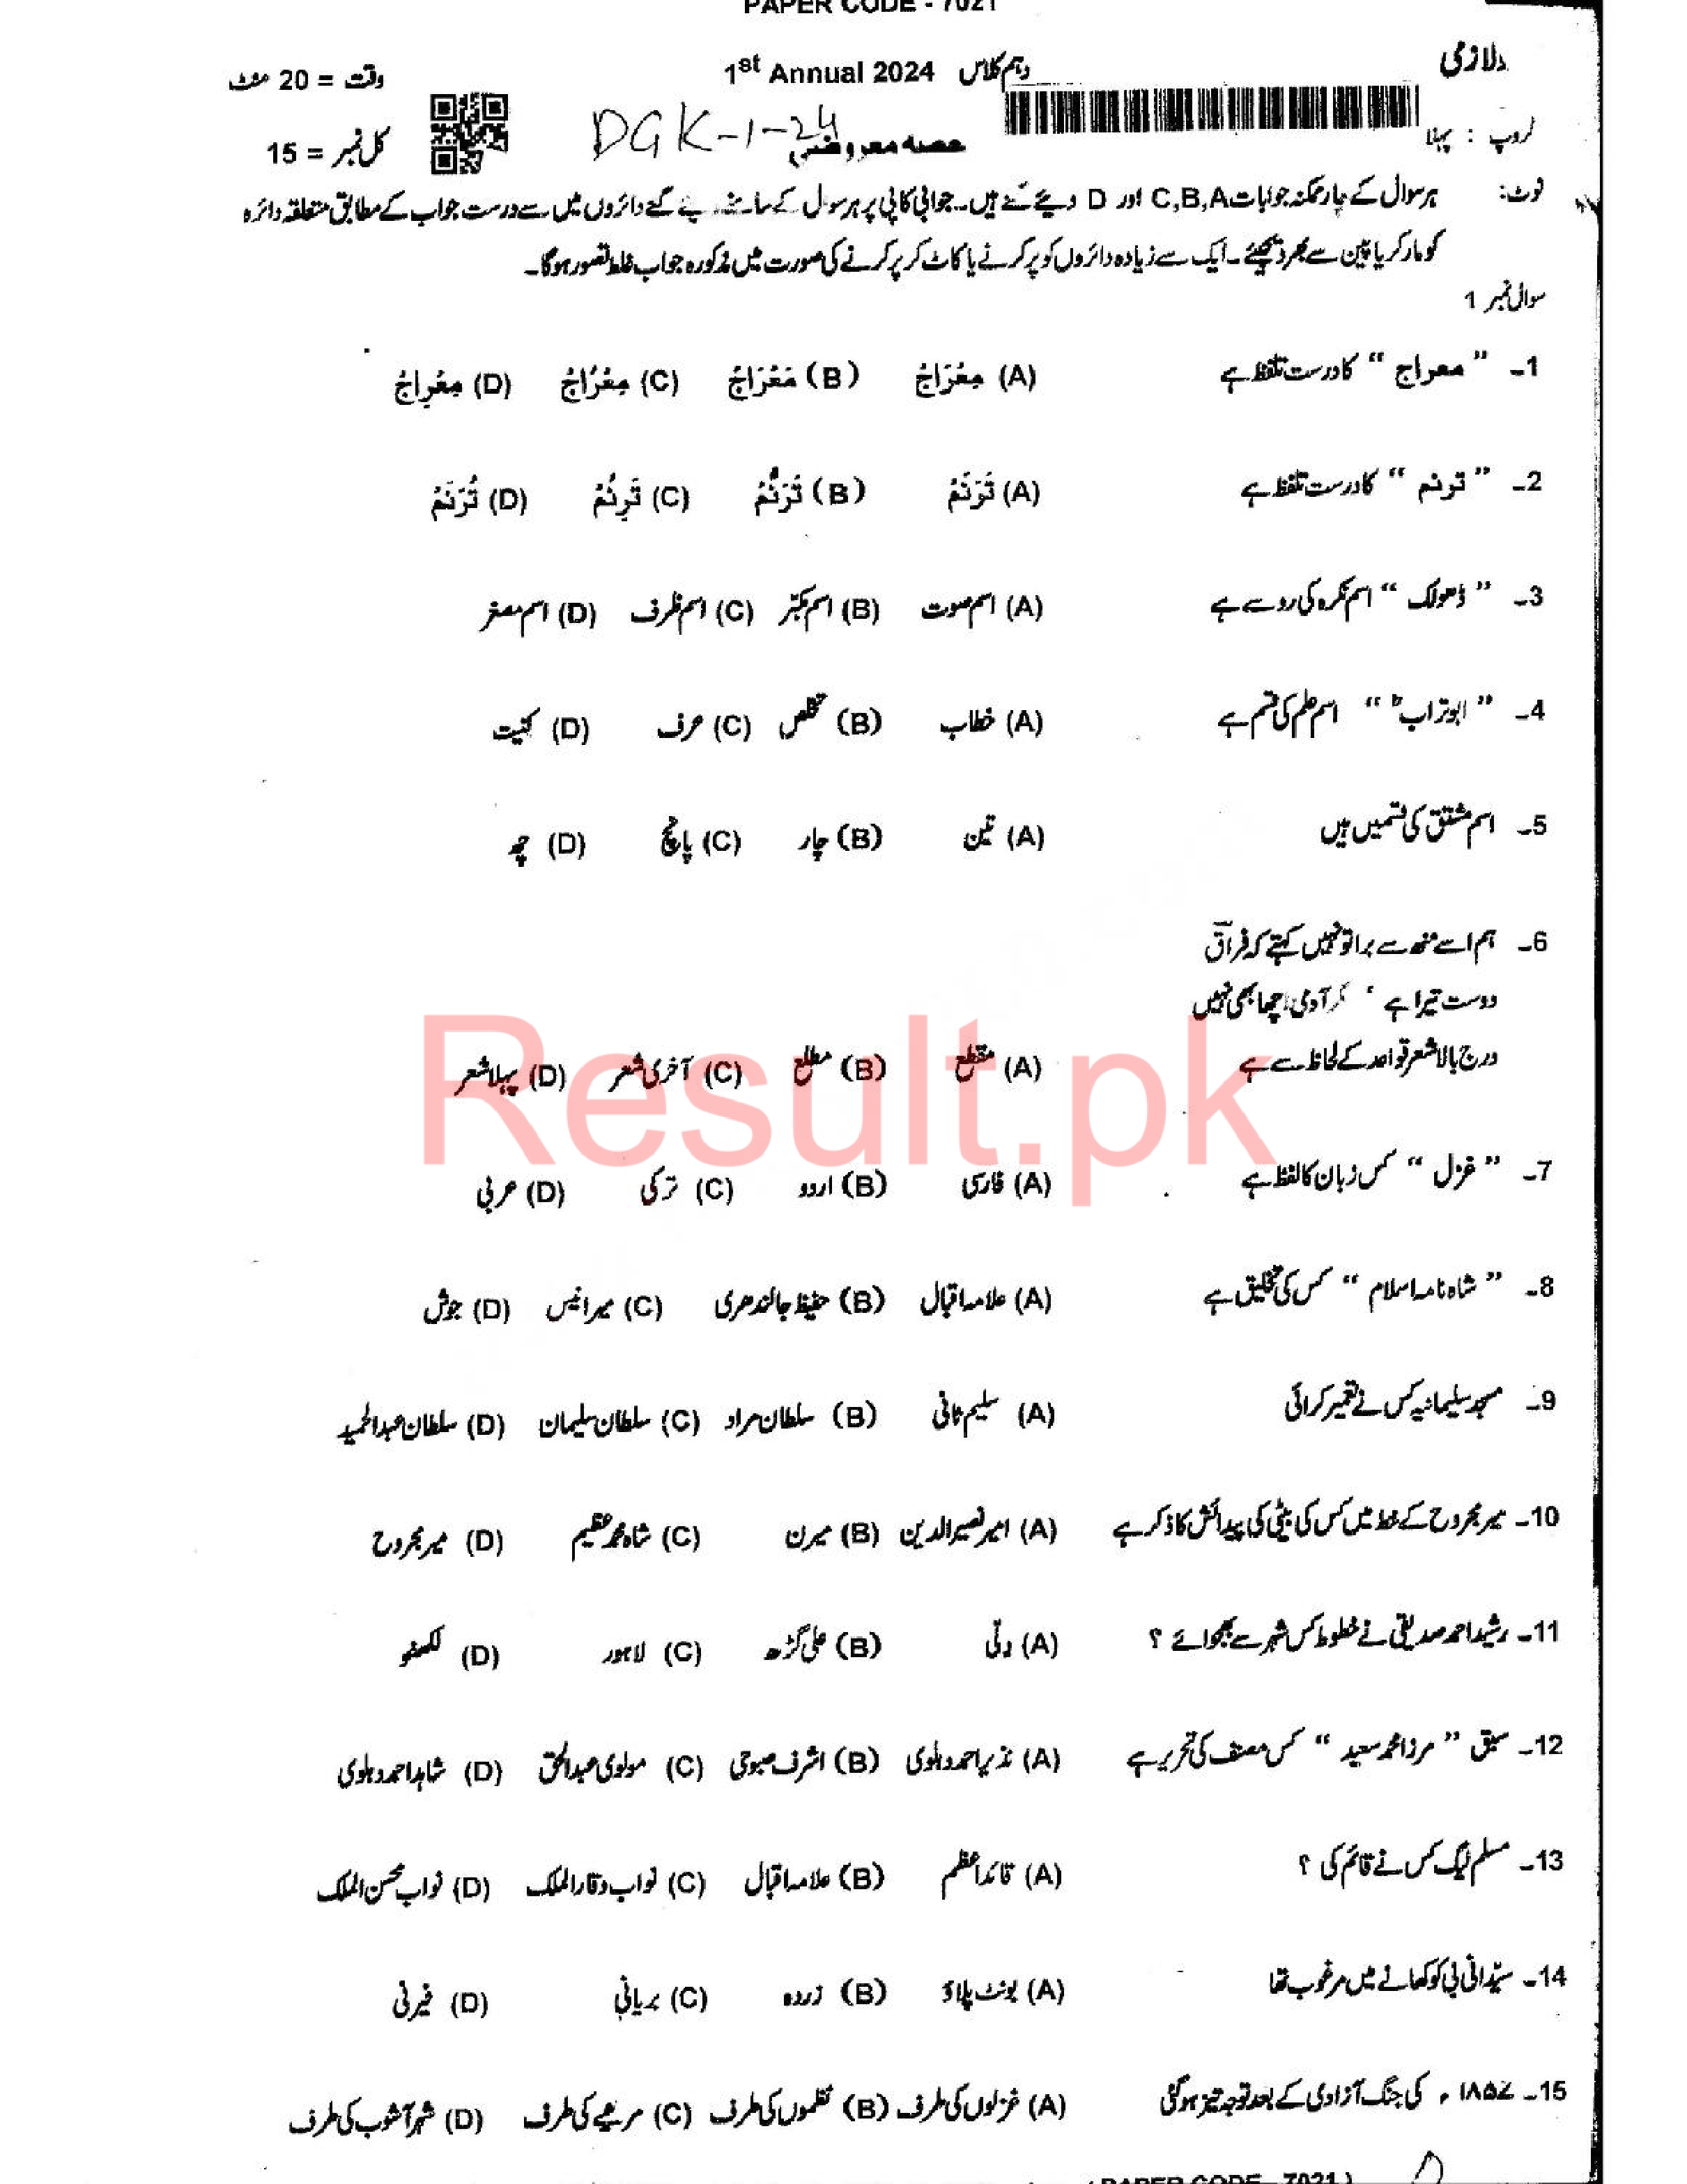 PAPER CODE - 7021
لازمی
1st Annual 2024 دہم کلاس
وقت = 20 منٹ
گروپ : پہلا
DGK-1-24
حصہ معروضی
کل نمبر = 15
نوٹ: ہر سوال کے چار ممکنہ جوابات C,B,A اور D دیئے گئے ہیں۔ جوابی کاپی پر ہر سوال کے سامنے دیئے گئے دائروں میں سے درست جواب کے مطابق متعلقہ دائرہ
کو مارکر یا پین سے بھر دیجئے۔ ایک سے زیادہ دائروں کو پر کرنے یا کاٹ کر پر کرنے کی صورت میں مذکورہ جواب غلط تصور ہوگا۔
سوال نمبر 1
1۔ " معراج " کا درست تلفظ ہے (A) مِعْرَاجْ (B) مَعْرَاجْ (C) مِعْرُاجْ (D) مِعْرِاجْ
2۔ " ترنم " کا درست تلفظ ہے (A) تَرَنَمْ (B) تَرَنُّمْ (C) تَرِنُمْ (D) تُرَنَمْ
3۔ " ڈھولک " اسم نکرہ کی رو سے ہے (A) اسم صوت (B) اسم مکبّر (C) اسم ظرف (D) اسم مصغر
4۔ " ابوتراب ؓ " اسم علم کی قسم ہے (A) خطاب (B) تخلص (C) عرف (D) کنیت
5۔ اسم مشتق کی قسمیں ہیں (A) تین (B) چار (C) پانچ (D) چھ
6۔ ہم اسے منھ سے برا تو نہیں کہتے کہ فراقؔ
دوست تیرا ہے ' مگر آدمی اچھا بھی نہیں
درج بالا شعر قواعد کے لحاظ سے ہے (A) مقطع (B) مطلع (C) آخری شعر (D) پہلا شعر
Result.pk
7۔ " غزل " کس زبان کا لفظ ہے (A) فارسی (B) اردو (C) ترکی (D) عربی
8۔ " شاہ نامہ اسلام " کس کی تخلیق ہے (A) علامہ اقبال (B) حفیظ جالندھری (C) میر انیس (D) جوش
9۔ مسجد سلیمانیہ کس نے تعمیر کرائی (A) سلیم ثانی (B) سلطان مراد (C) سلطان سلیمان (D) سلطان عبدالحمید
10۔ میر مجروح کے خط میں کس کی بیٹی کی پیدائش کا ذکر ہے (A) امیر نصیرالدین (B) میرن (C) شاہ محمد عظیم (D) میر مجروح
11۔ رشید احمد صدیقی نے خطوط کس شہر سے بھجوائے ؟ (A) دلّی (B) علی گڑھ (C) لاہور (D) لکھنو
12۔ سبق " مرزا محمد سعید " کس مصنف کی تحریر ہے (A) نذیر احمد دہلوی (B) اشرف صبوحی (C) مولوی عبدالحق (D) شاہد احمد دہلوی
13۔ مسلم لیگ کس نے قائم کی ؟ (A) قائداعظم (B) علامہ اقبال (C) نواب وقار الملک (D) نواب محسن الملک
14۔ سیّدانی بی کو کھانے میں مرغوب تھا (A) بونٹ پلاؤ (B) زردہ (C) بریانی (D) فیرنی
15۔ ۱۸۵۷ء کی جنگ آزادی کے بعد توجہ تیز ہو گئی (A) غزلوں کی طرف (B) نظموں کی طرف (C) مرثیے کی طرف (D) شہر آشوب کی طرف
( PAPER CODE - 7021 )